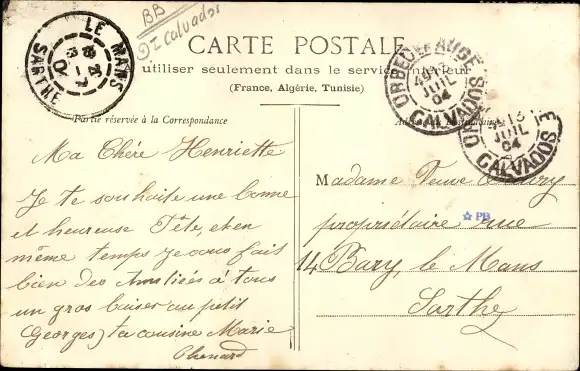 BB
Dt Calvados
CARTE POSTALE
utiliser seulement dans le service intérieur
(France, Algérie, Tunisie)
Partie réservée à la Correspondance
LE MANS
SARTHE
ORBEC EN AUGE
4E 13
JUIL
04
CALVADOS
4E 13
JUIL
04
CALVADOS
Ma Chère Henriette
Je te souhaite une bonne
et heureuse Fête, et en
même temps Je vous fais
bien des Amitiées à tous
un gros baiser au petit
Georges) ta cousine Marie
Chenard
Madame Veuve
propriétaire rue
14 Bary, le Mans
Sarthe
PB